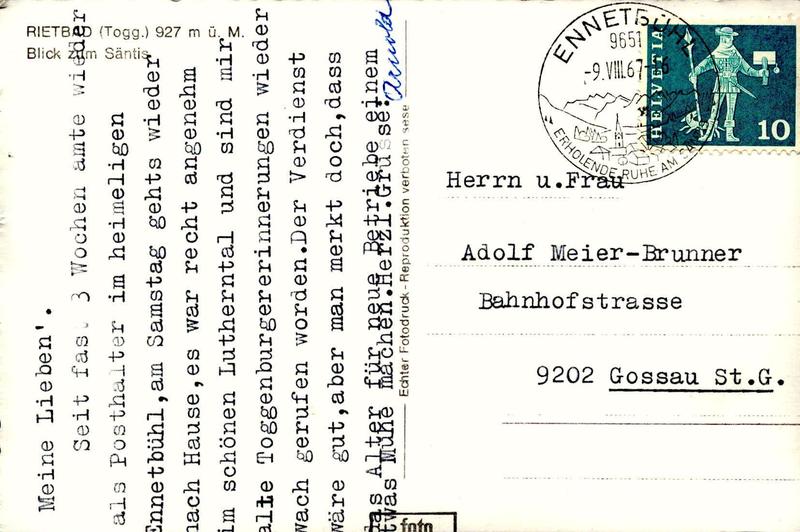 RIETBAD (Togg.) 927 m ü. M.
Blick zum Säntis
Meine Lieben'.
Seit fast 3 Wochen amte wieder
als Posthalter im heimeligen
Ennetbühl,am Samstag gehts wieder
nach Hause,es war recht angenehm
im schönen Lutherntal und sind mir
alte Toggenburgererinnerungen wieder
wach gerufen worden.Der Verdienst
wäre gut,aber man merkt doch,dass
das Alter für neue Betriebe einem
etwas Mühe machen.Herzl.Grüsse:
Arnold
Echter Fotodruck - Reproduktion verboten
foto
ENNETBÜHL
9651
-9.VIII.67-
ERHOLENDE RUHE AM
HELVETIA
10
Herrn u.Frau
Adolf Meier-Brunner
Bahnhofstrasse
9202 Gossau St.G.